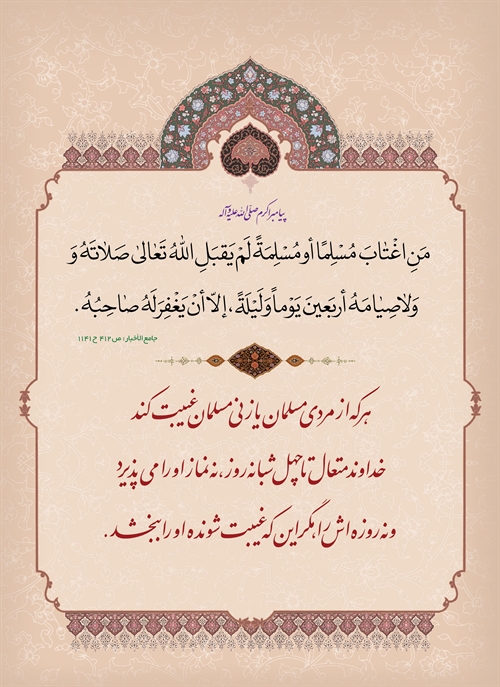 پیامبر اکرم صلّی الله علیه و آله
مَنِ اغْتٰابَ مُسْلِمًا أو مُسْلِمَةً لَمْ يَقبَلِ اللهُ تَعالىٰ صَلاتَهُ وَ
وَلا صِيٰامَهُ أربَعينَ يَوْماً وَلَيْلَةً، إلاّ أنْ يَغْفِرَ لَهُ صٰاحِبُهُ.
جامع الأخبار: ص ۴۱۲ ح ۱۱۴۱
هر که از مردی مسلمان یا زنی مسلمان غیبت کند
خداوند متعال تا چهل شبانه روز، نه نماز او را می پذیرد
و نه روزه اش را، مگر این که غیبت شونده او را ببخشد.